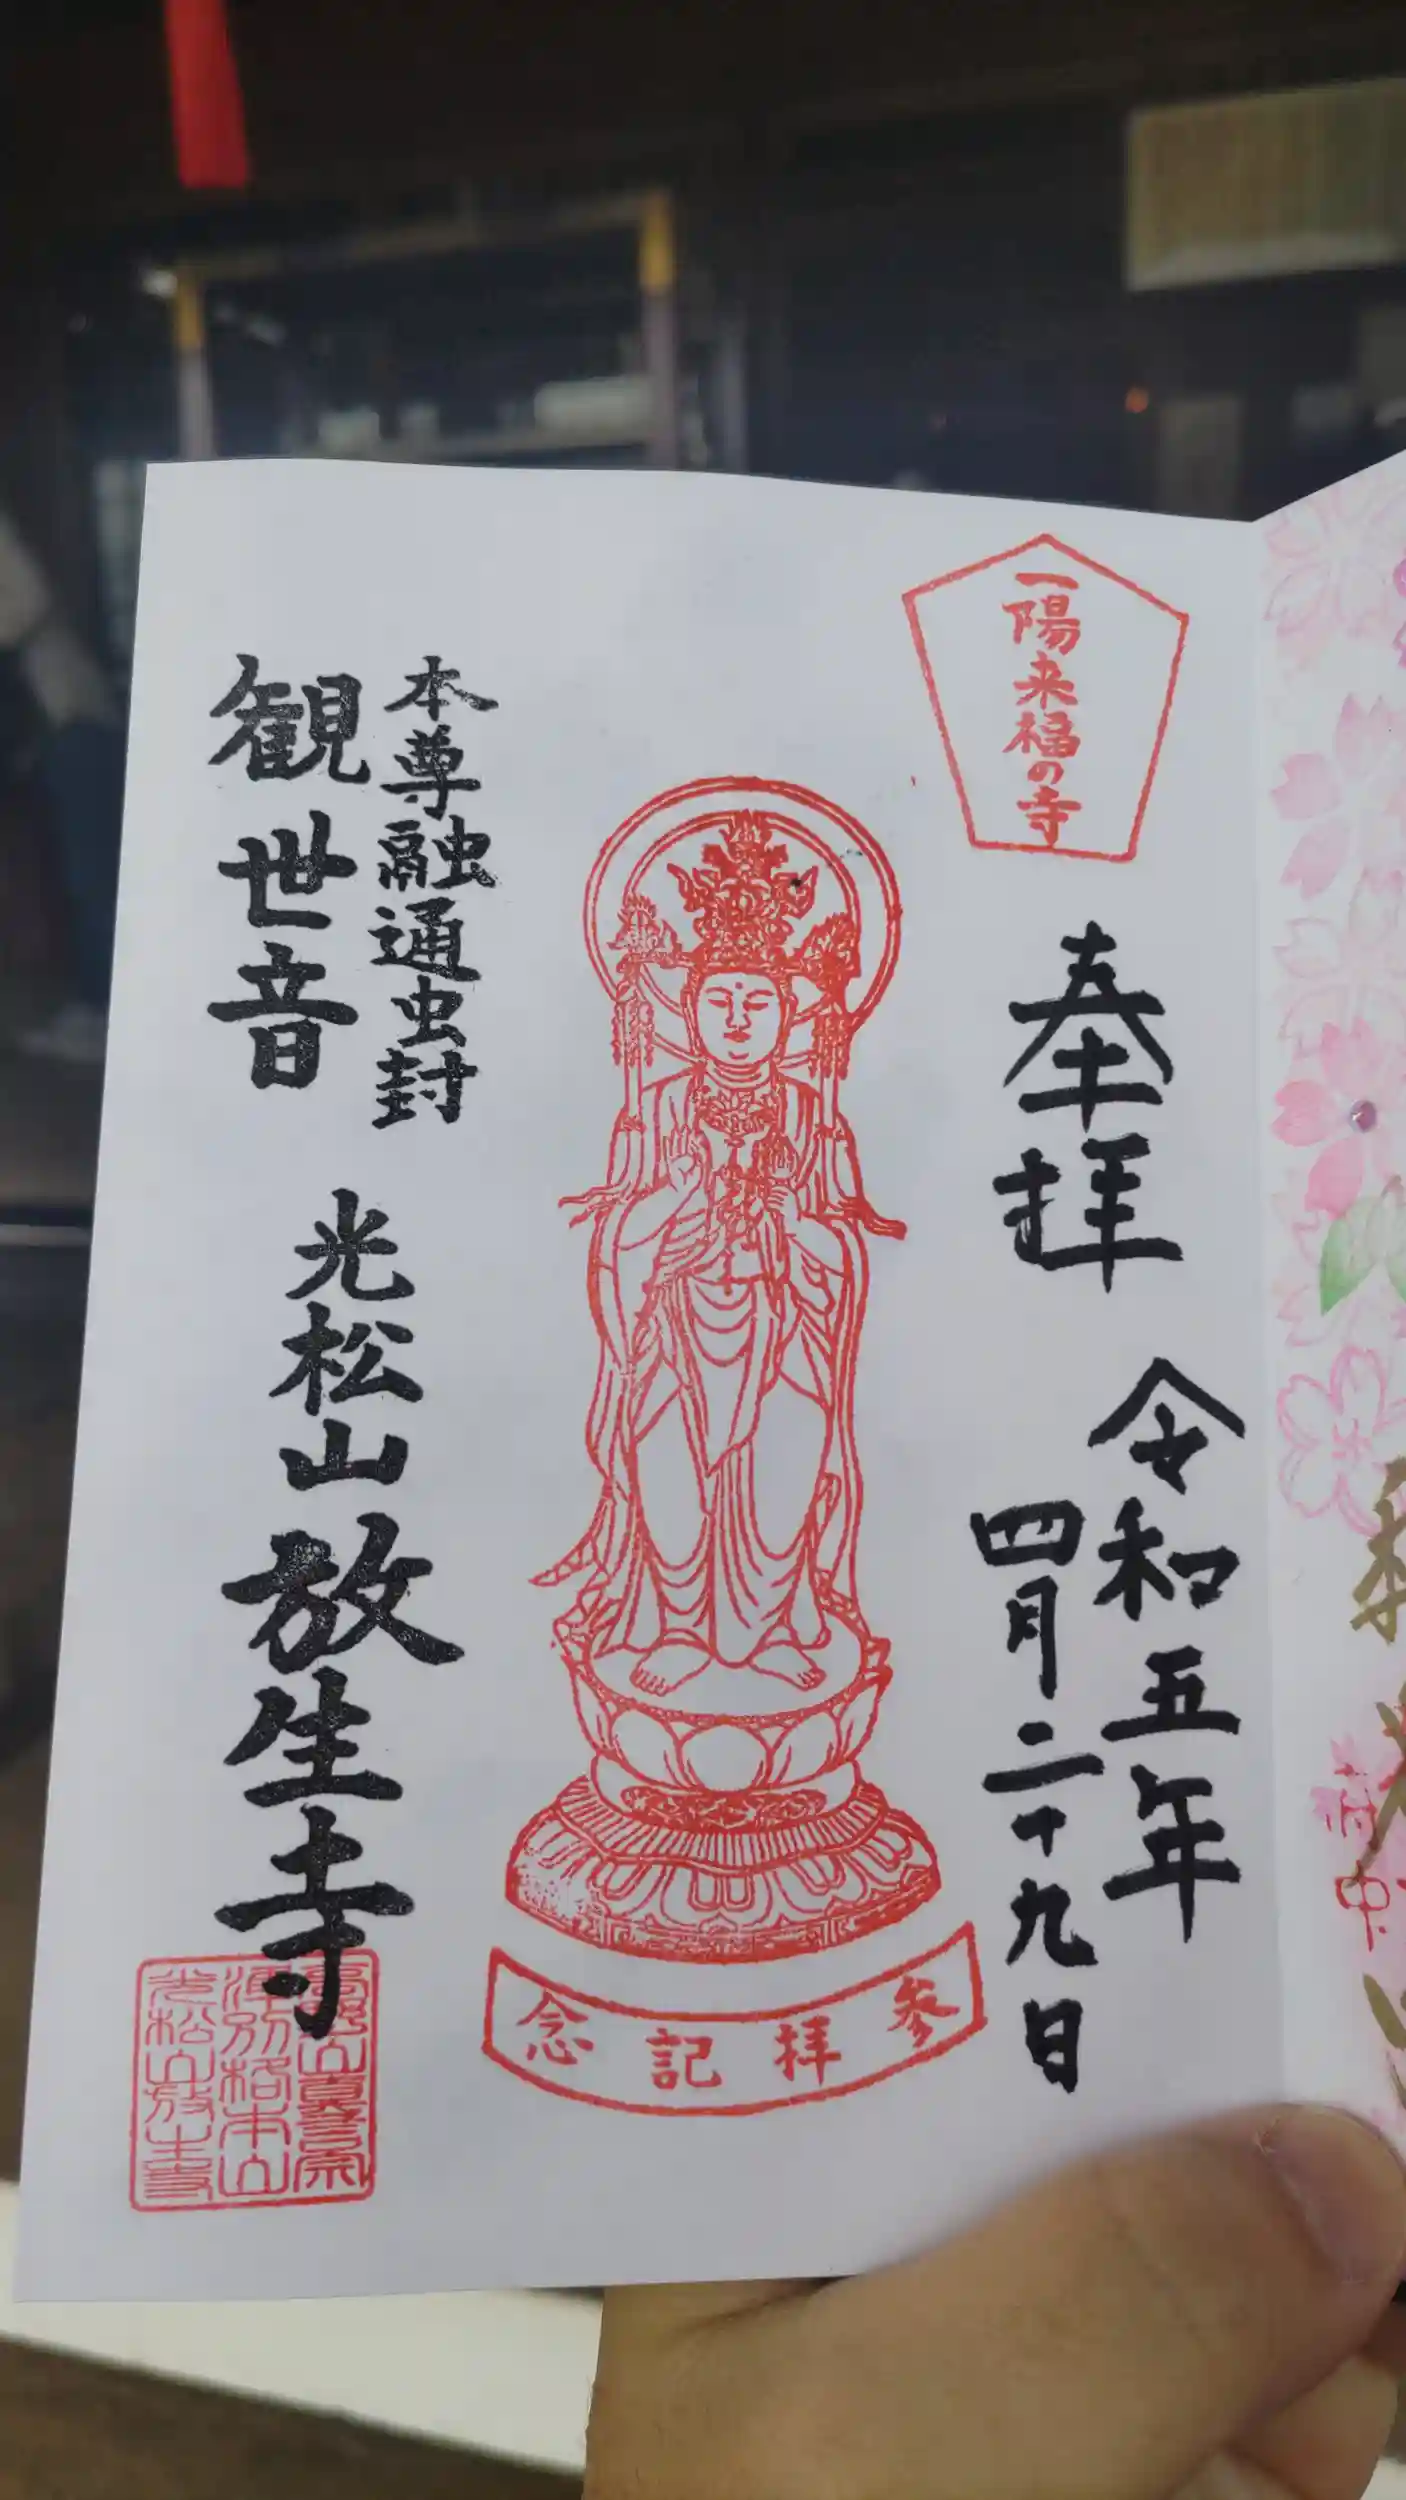 一陽来福の寺
奉拝
令和五年
四月二十九日
参拝記念
本尊融通虫封
観世音
光松山放生寺
高野山真言宗
準別格本山
光松山放生寺